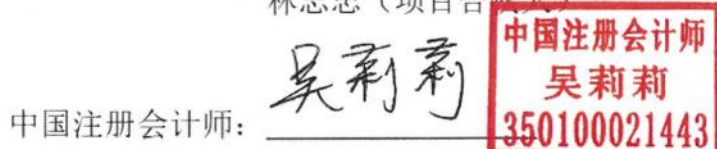 中国注册会计师
吴莉莉
吴莉莉
中国注册会计师：
350100021443